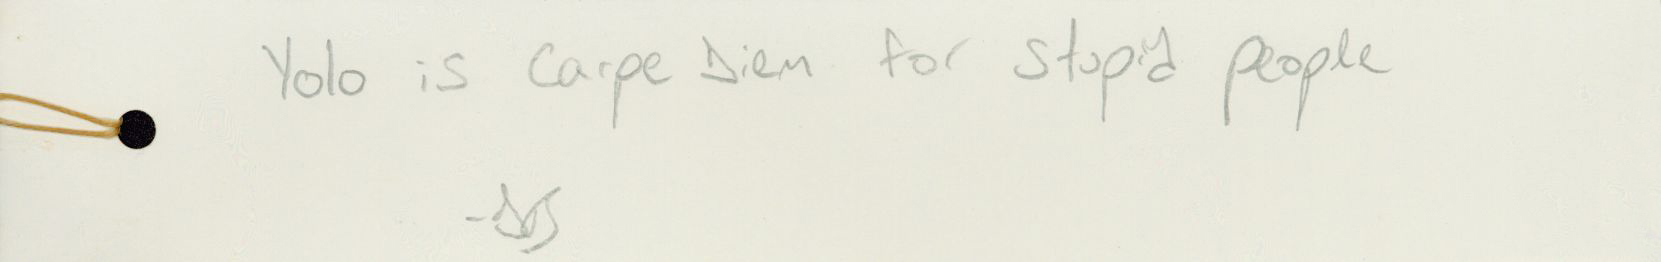 Yolo is Carpe Diem for stupid people